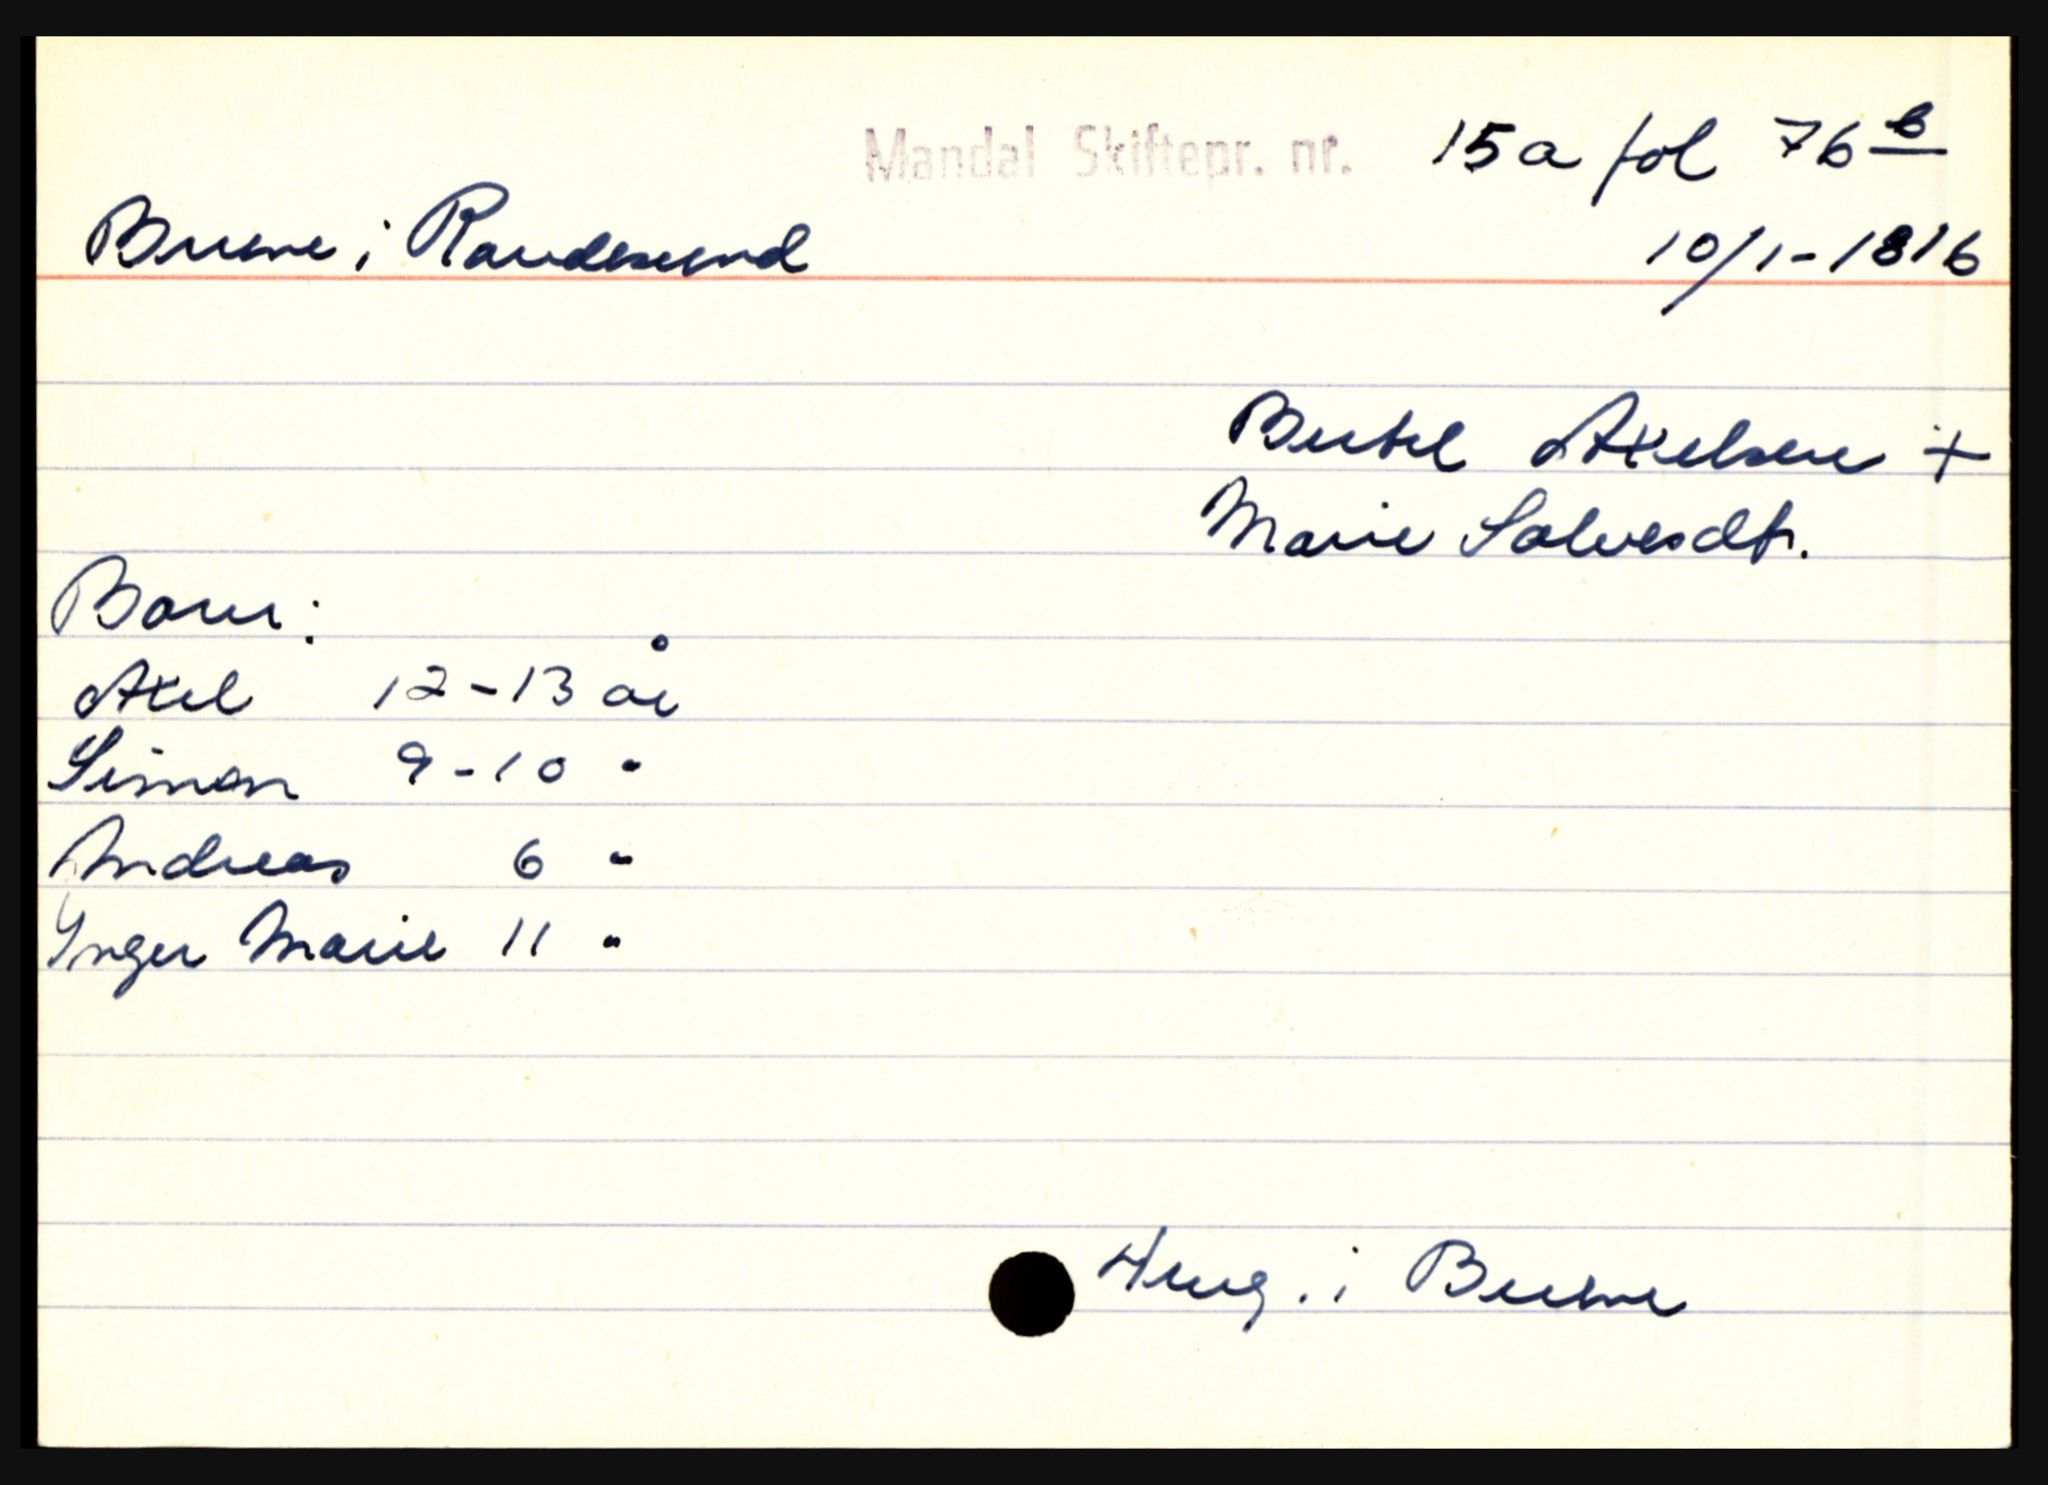 Mandal Skiftepr. nr. 15a fol 76 b
Buene i Randesund 10/1-1816
Bertel Axelsen +
Marie Salvesdtr.
Barn:
Axel 12-13 år
Simon 9-10 "
Andreas 6 "
Inger Marie 11 "
Hmg. i Buene